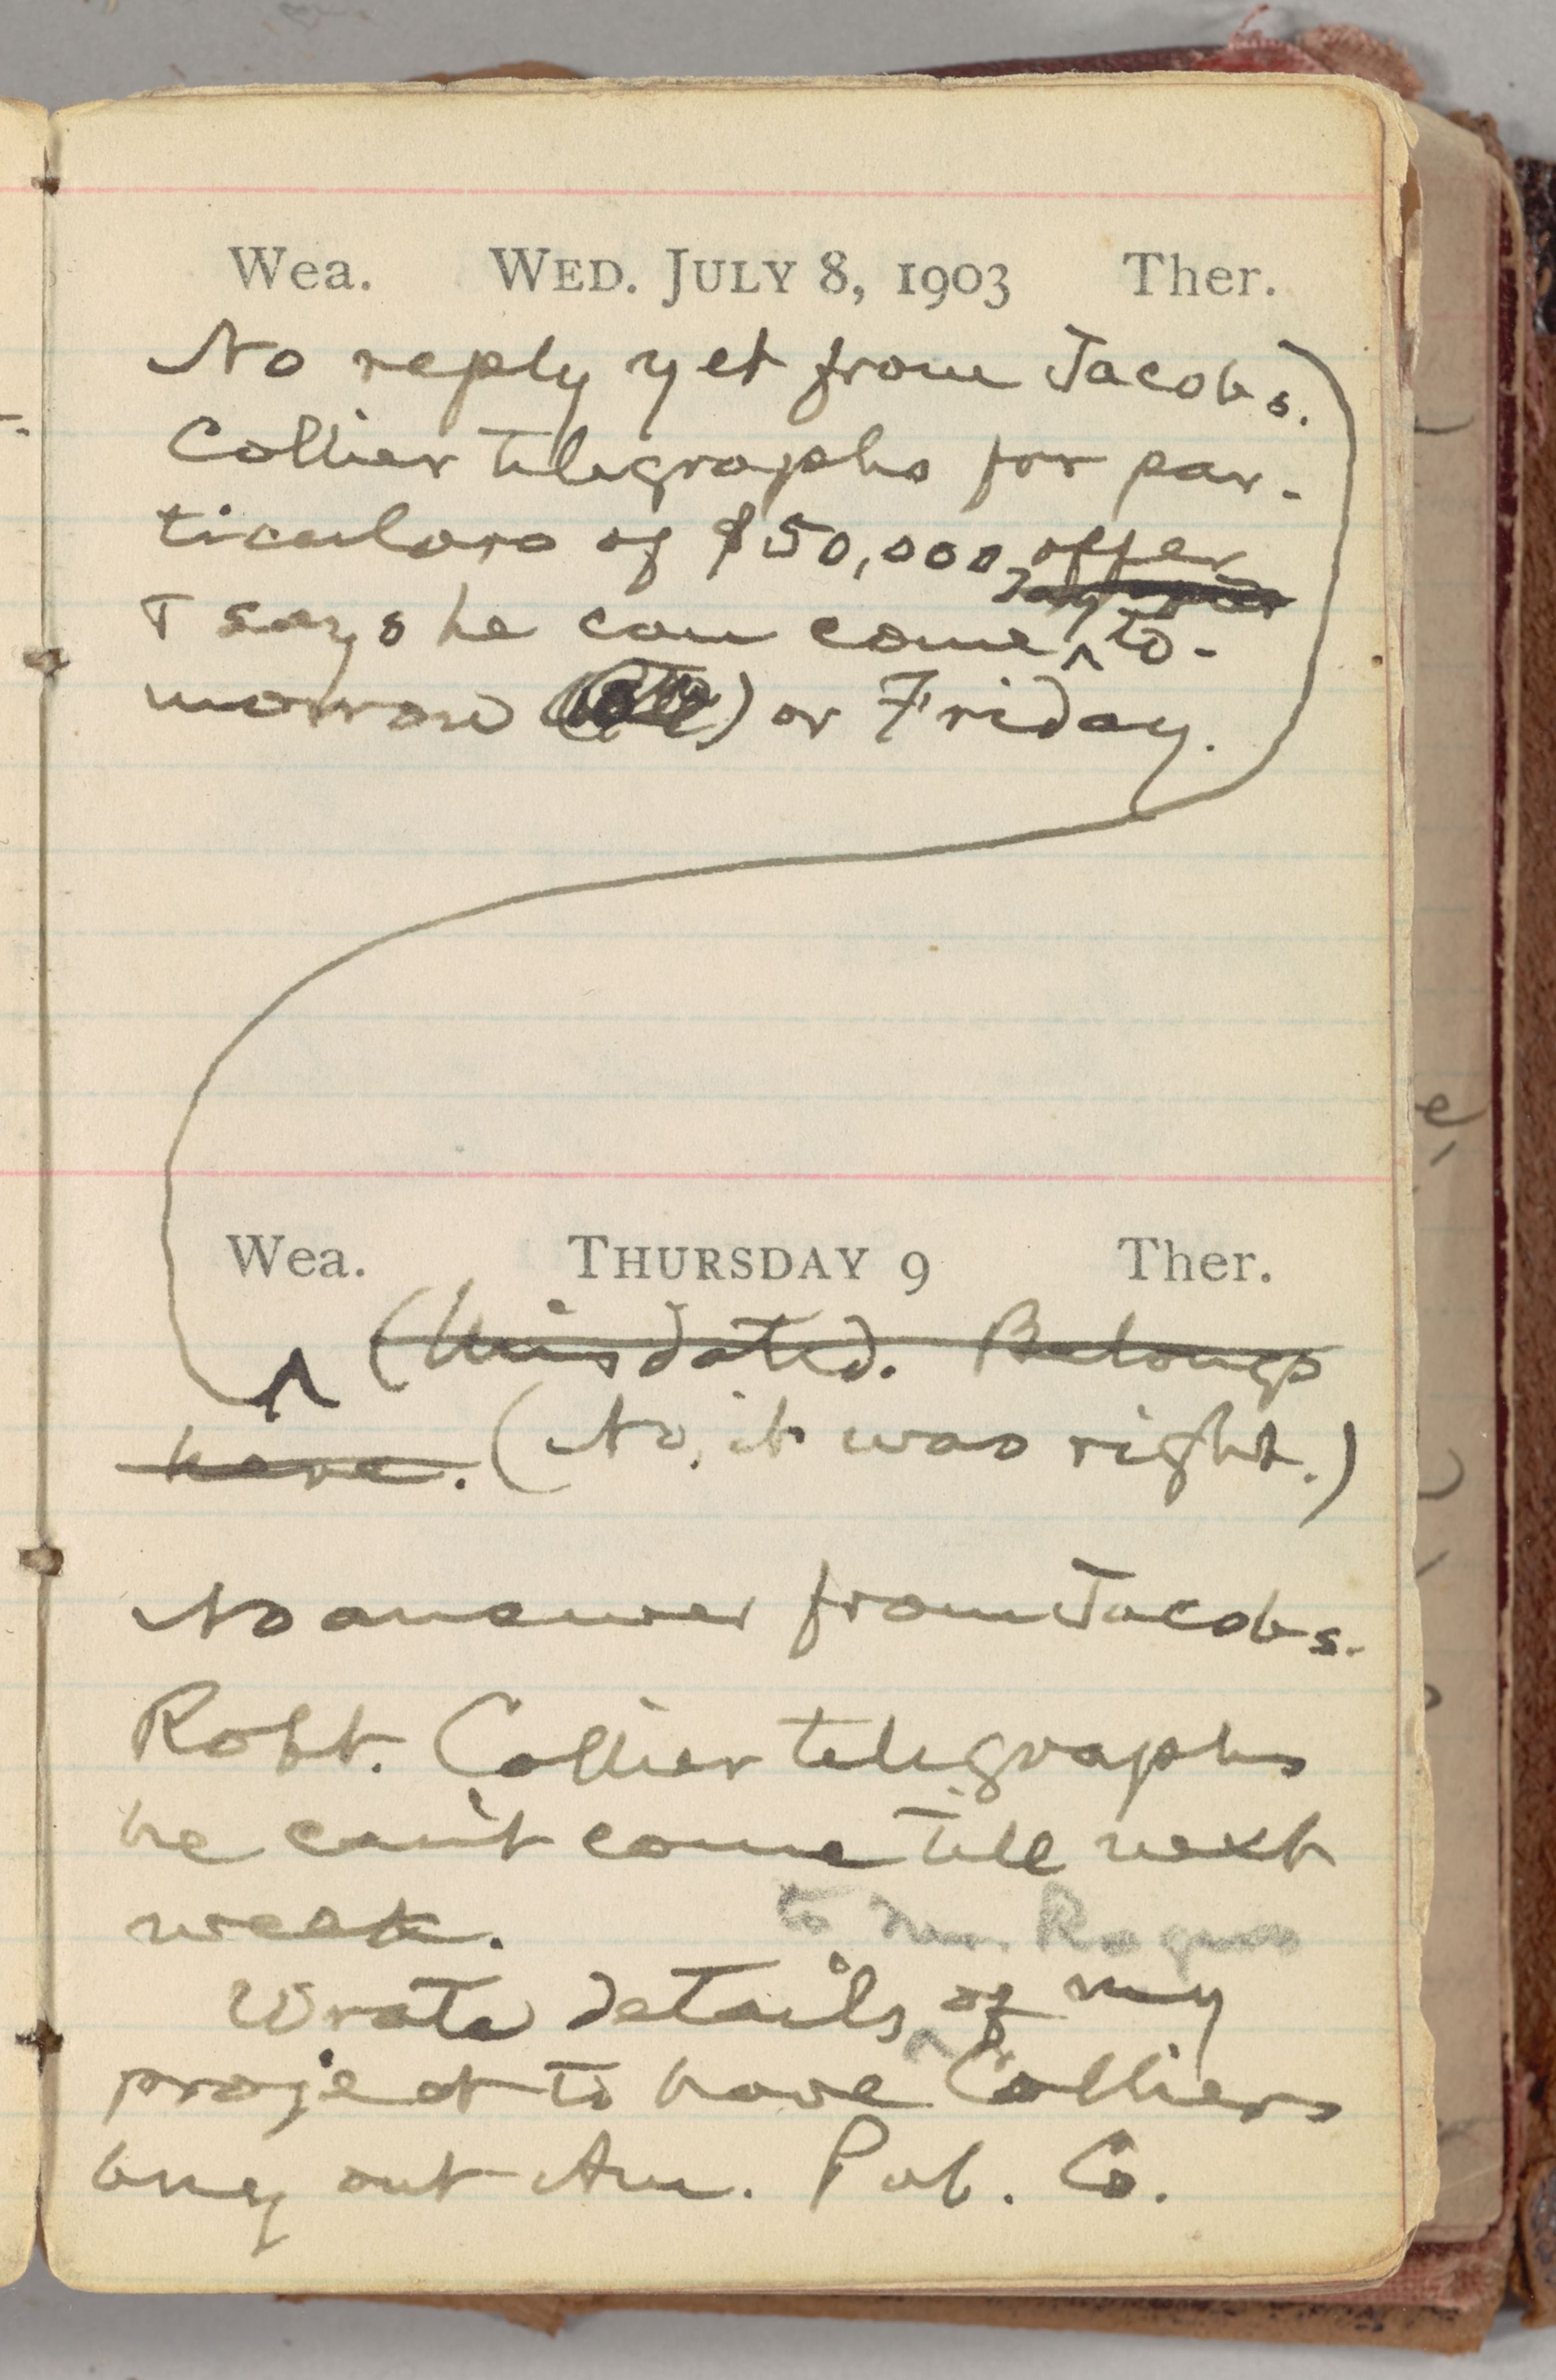 Wea. WED. JULY 8, 1903 Ther.
No reply yet from Jacobs.
Collier telegraphs for par-
ticulars of $50,000 offer
& says he can come to-
morrow ) or Friday.
Wea. THURSDAY 9 Ther.
(Misdated. Belongs
here. (No, it was right.)
No answer from Jacobs.
Robt. Collier telegraphs
he can't come till next
week.
to Mr. Rogers
Wrote details of my
project to have Colliers
buy out Am. Pub. Co.